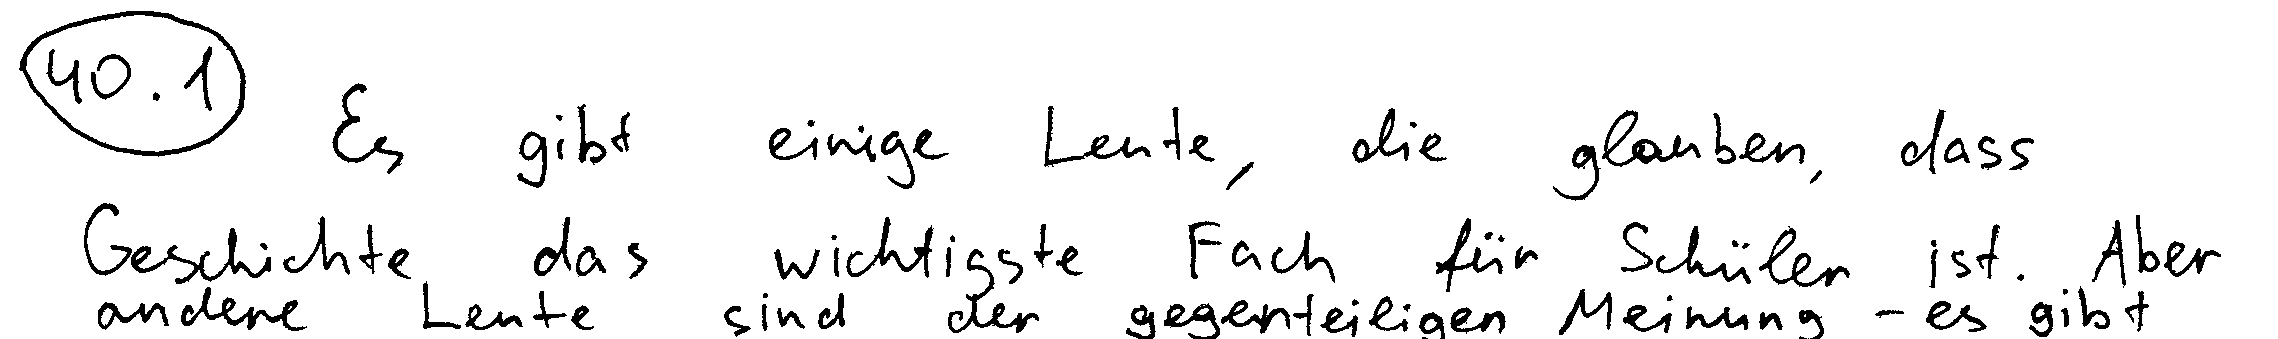 40.1 Es gibt einige Leute, die glauben, dass
Geschichte das wichtigste Fach für Schüler ist. Aber
andere Leute sind der gegenteiligen Meinung - es gibt